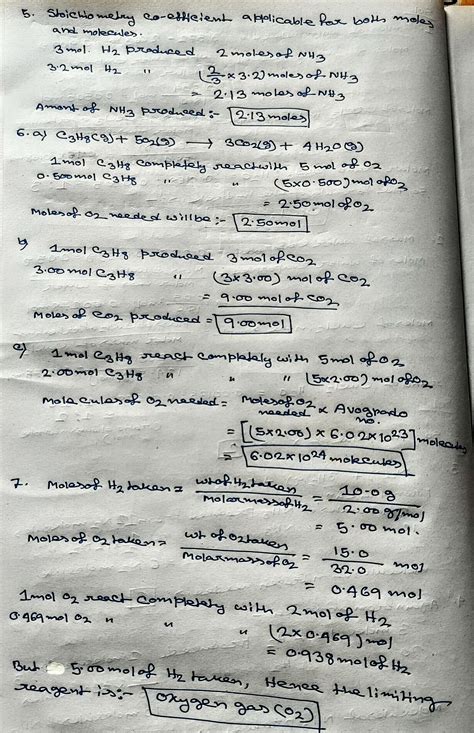 5. Stoichiometry co-efficient applicable for both moles
and molecules.
3 mol H2 produced 2 moles of NH3
3.2 mol H2 " (2/3 × 3.2) moles of NH3
= 2.13 moles of NH3
Amont of NH3 produced :- 2.13 moles
6. a) C3H8(g) + 5O2(g) → 3CO2(g) + 4H2O(g)
1 mol C3H8 completely react with 5 mol of O2
0.500 mol C3H8 " " (5×0.500) mol of O2
= 2.50 mol of O2
Moles of O2 needed will be :- 2.50 mol
b) 1 mol C3H8 produced 3 mol of CO2
3.00 mol C3H8 " (3×3.00) mol of CO2
= 9.00 mol of CO2
Moles of CO2 produced = 9.00 mol
c) 1 mol C3H8 react completely with 5 mol of O2
2.00 mol C3H8 " " " (5×2.00) mol of O2
Molecules of O2 needed = Moles of O2 needed × Avogrado no.
= [(5×2.00) × 6.02×10^23] molecules
= 6.02×10^24 molecules
7. Moles of H2 taken = wt of H2 taken / Molar mass of H2 = 10.0 g / 2.00 g/mol
= 5.00 mol.
Moles of O2 taken = wt of O2 taken / Molar mass of O2 = 15.0 / 32.0 mol
= 0.469 mol
1 mol O2 react completely with 2 mol of H2
0.469 mol O2 " " " (2×0.469) mol
= 0.938 mol of H2
But 5.00 mol of H2 taken, Hence the limiting
reagent is :- oxygen gas (O2)